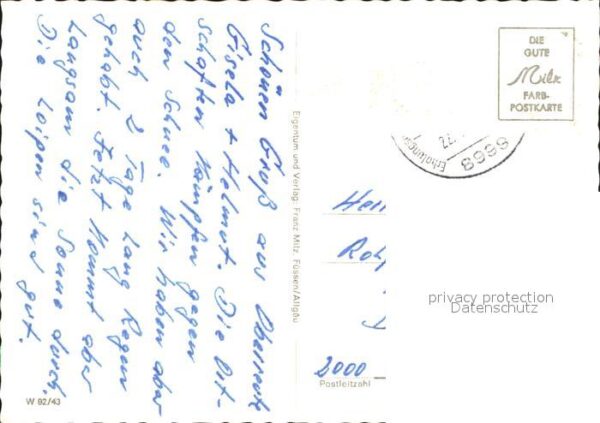 Schönen Gruß aus Oberreute
Gisela + Helmut. Die Ort-
schaften kämpfen gegen
den Schnee. Wir haben aber
auch 2 Tage lang Regen
gehabt. Jetzt kommt aber
langsam die Sonne durch.
Die Loipen sind gut.
Eigentum und Verlag: Franz Milz, Füssen/Allgäu
W 92/43
DIE
GUTE
Milz
FARB-
POSTKARTE
22.
8999
2000
Postleitzahl
privacy protection
Datenschutz